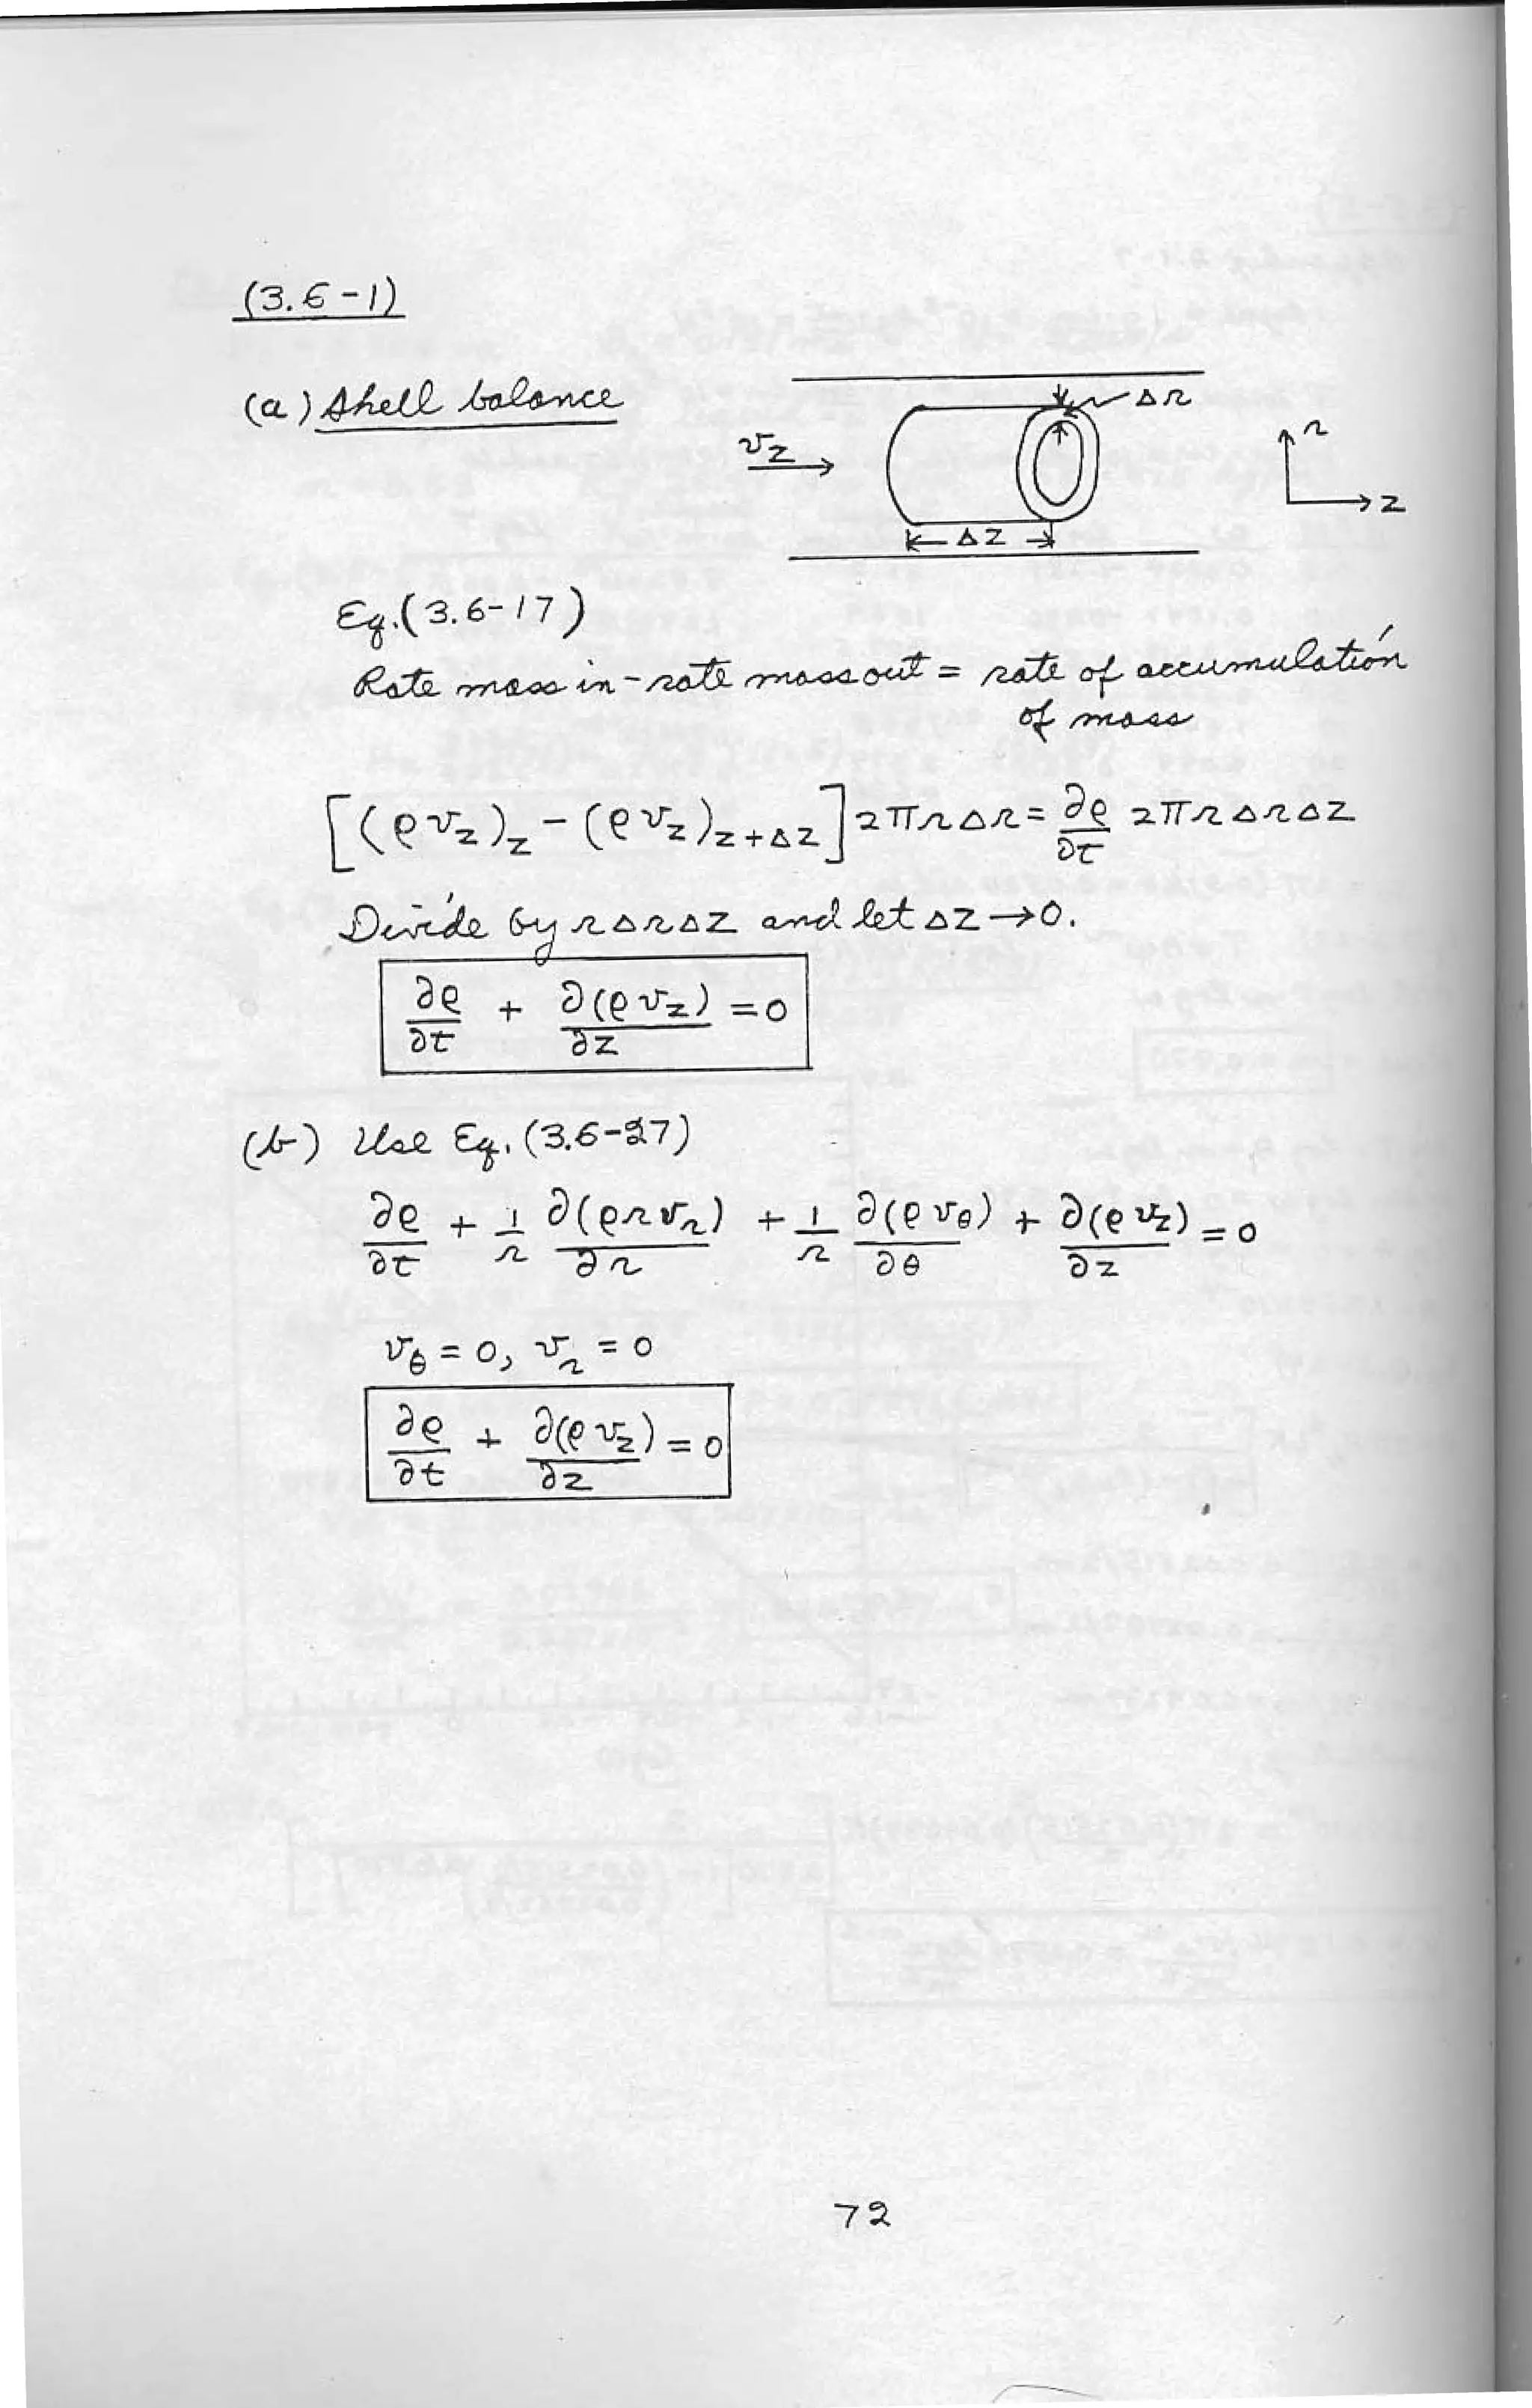 (3.6-1)
(a) Shell balance
Δr
v_z
r
z
Δz
Eq. (3.6-17)
Rate mass in - rate mass out = rate of accumulation
of mass
[(ρv_z)_z - (ρv_z)_{z+Δz}] 2πrΔr = ∂ρ/∂t 2πrΔrΔz
Divide by rΔrΔz and let Δz → 0.
∂ρ/∂t + ∂(ρv_z)/∂z = 0
(b) Use Eq. (3.6-27)
∂ρ/∂t + 1/r ∂(ρrv_r)/∂r + 1/r ∂(ρv_θ)/∂θ + ∂(ρv_z)/∂z = 0
v_θ = 0, v_r = 0
∂ρ/∂t + ∂(ρv_z)/∂z = 0
72